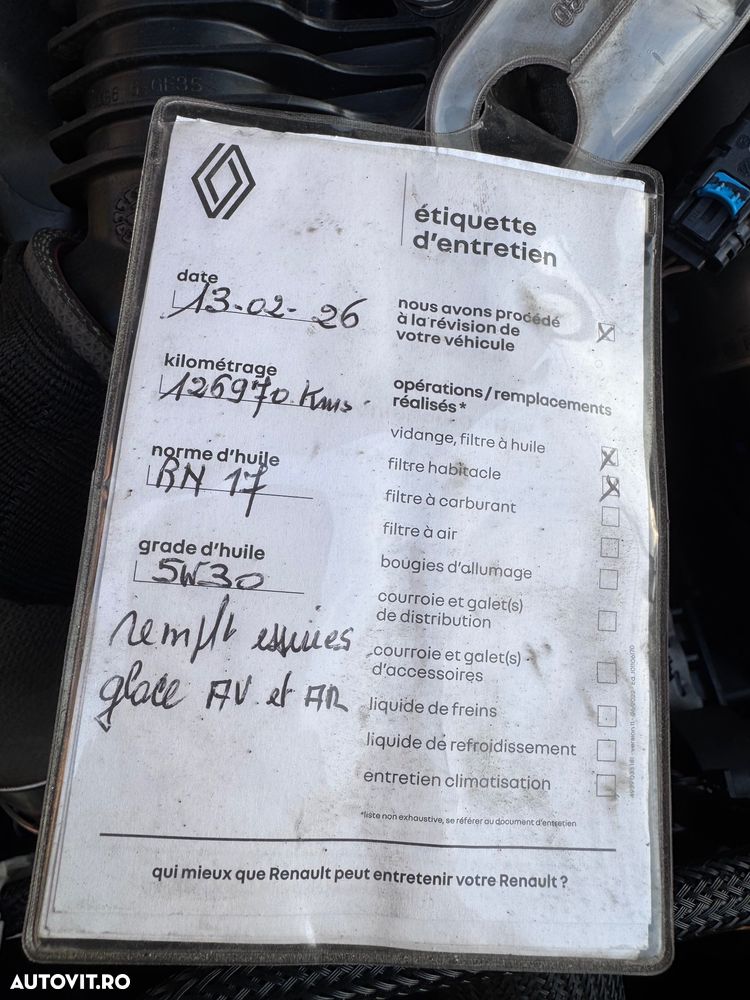 étiquette
d'entretien
date
13-02-26
nous avons procédé
à la révision de
votre véhicule
kilométrage
126970 Kms
opérations/remplacements
réalisés*
vidange, filtre à huile
norme d'huile
RN 17
filtre habitacle
filtre à carburant
filtre à air
grade d'huile
5W30
bougies d'allumage
courroie et galet(s)
de distribution
rempl^t essuies
glace AV et AR
courroie et galet(s)
d'accessoires
liquide de freins
liquide de refroidissement
entretien climatisation
*liste non exhaustive, se référer au document d'entretien
qui mieux que Renault peut entretenir votre Renault ?
AUTOVIT.RO